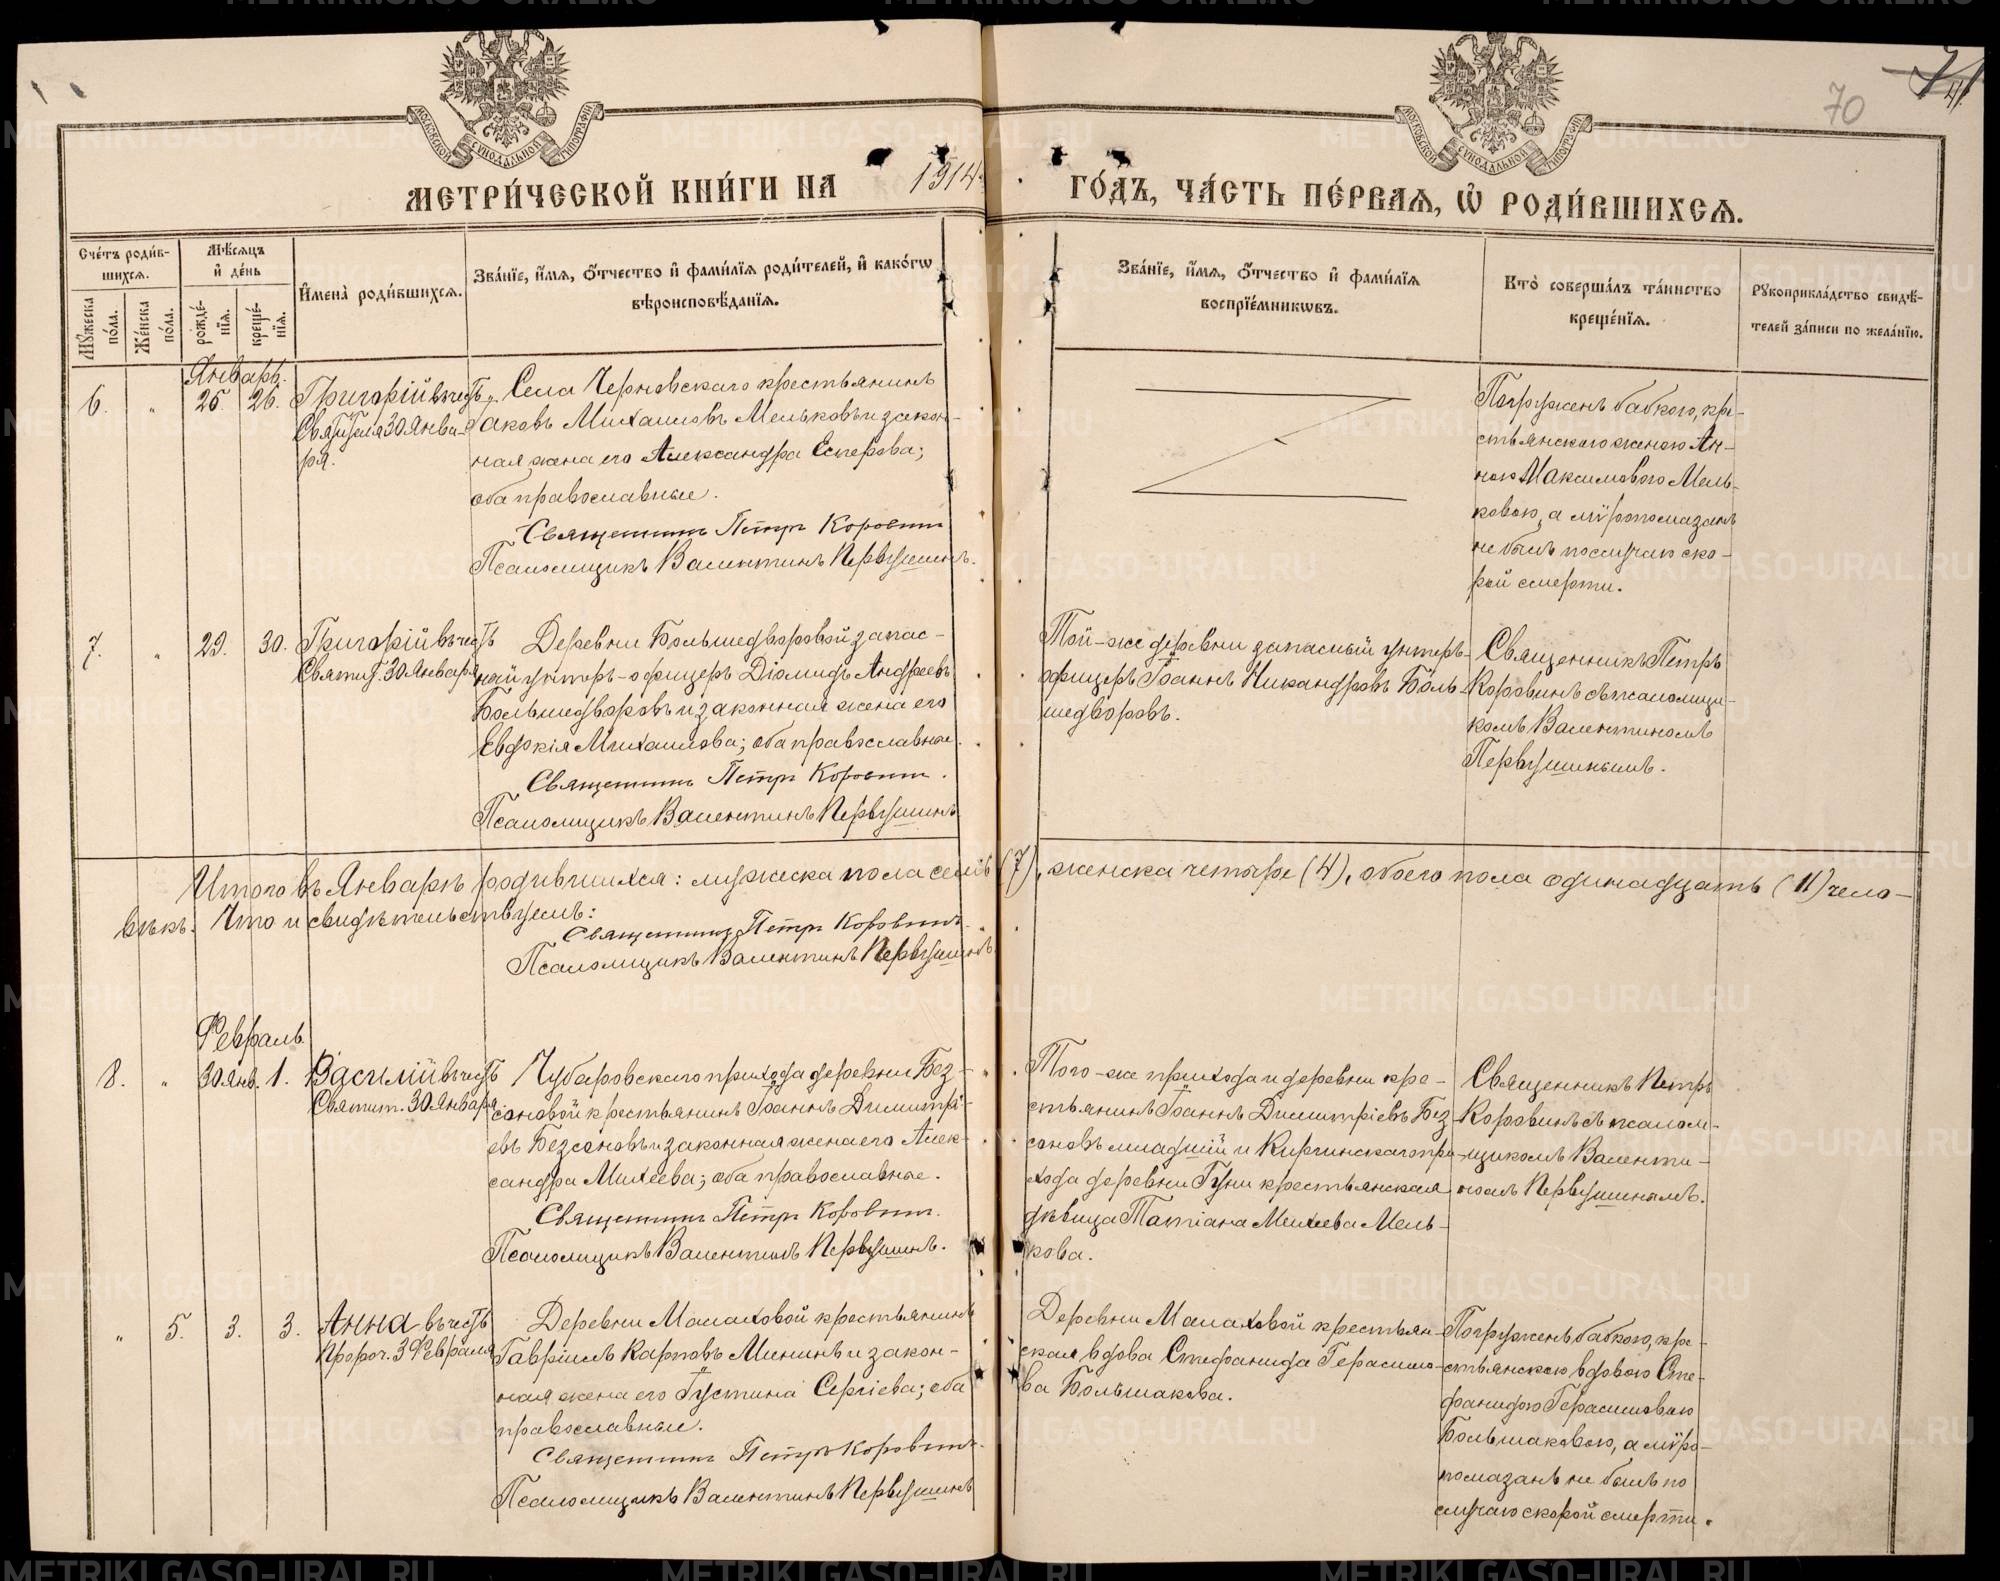 70
МОСКОВСКОЙ СѴНОДАЛЬНОЙ ТИПОГРАФІИ
МОСКОВСКОЙ СѴНОДАЛЬНОЙ ТИПОГРАФІИ
МЕТРИ́ЧЕСКОЙ КНИ́ГИ НА 1914 ГО́ДЪ, ЧА́СТЬ ПЕ́РВАЯ, Ѡ҆ РОДИ́ВШИХСЯ.
Сче́тъ роди́в-
шихся.
Мꙋ́жеска по́ла.
Же́нска по́ла.
Мѣ́сяцъ
и҆ де́нь
рожде́-
нїя.
креще́-
нїя.
И҆мена̀ роди́вшихся.
Зва́нїе, и҆́мя, ѻ҆́тчество и҆ фами́лїя роди́телей, и҆ како́гѡ
вѣроисповѣ́данїя.
Зва́нїе, и҆́мя, ѻ҆́тчество и҆ фами́лїя
воспрїе́мникѡвъ.
Кто̀ соверша́лъ та́инство
креще́нїя.
Рꙋкоприкла́дство свидѣ́-
телей за́писи по жела́нїю.
Январь.
6. „ 25. 26.
Григорій въ честь
Свят. 30 Янва-
ря.
Села Черновскаго крестьянинъ
Іаковъ Михаиловъ Мельковъ и закон-
ная жена его Александра Есперова;
оба православные.
Священникъ Петръ Коровинъ
Псаломщикъ Валентинъ Первушинъ.
Погруженъ бабкою, кре-
стьянскою женою Ан-
ною Максимовою Мель-
ковою, а мѵропомазанъ
не былъ по случаю ско-
рой смерти.
7. „ 29. 30.
Григорій въ честь
Святит. 30 Января
Деревни Большедворовой запас-
ной унтеръ-офицеръ Діомидъ Андреевъ
Большедворовъ и законная жена его
Евдокія Михаилова; оба православные.
Священникъ Петръ Коровинъ.
Псаломщикъ Валентинъ Первушинъ
Той-же деревни запасный унтеръ-
офицеръ Іоаннъ Никандровъ Боль-
шедворовъ.
Священникъ Петръ
Коровинъ съ псаломщи-
комъ Валентиномъ
Первушинымъ.
Итого въ Январѣ родившихся: мужеска пола семь (7), женска четыре (4), обоего пола одинадцать (11) чело-
вѣкъ. Что и свидѣтельствуемъ:
Священникъ Петръ Коровинъ.
Псаломщикъ Валентинъ Первушинъ.
Февраль
8. „ 30 Янв. 1.
Василій въ честь
Святит. 30 Января
Чубаровскаго прихода деревни Без-
соновой крестьянинъ Іоаннъ Димитрі-
евъ Безсоновъ и законная жена его Алек-
сандра Михеева; оба православные.
Священникъ Петръ Коровинъ.
Псаломщикъ Валентинъ Первушинъ.
Того-же прихода и деревни кре-
стьянинъ Іоаннъ Димитріевъ Без-
соновъ младшій и Киргинскаго при-
хода деревни Гуни крестьянская
дѣвица Татіана Михеева Мель-
кова.
Священникъ Петръ
Коровинъ съ псалом-
щикомъ Валенти-
номъ Первушинымъ.
„ 5. 3. 3.
Анна въ честь
Пророч. 3 Февраля
Деревни Малаховой крестьянинъ
Гавріилъ Карповъ Мининъ и закон-
ная жена его Іустина Сергіева; оба
православные.
Священникъ Петръ Коровинъ.
Псаломщикъ Валентинъ Первушинъ
Деревни Малаховой крестьян-
ская вдова Стефанида Герасимо-
ва Большакова.
Погруженъ бабкою, кре-
стьянскою вдовою Сте-
фанидою Герасимовою
Большаковою, а мѵро-
помазанъ не былъ по
случаю скорой смерти.
METRIKI.GASO-URAL.RU